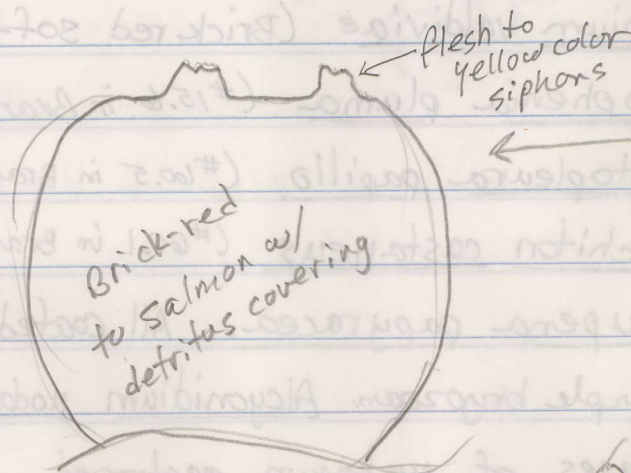 flesh to
yellow color
siphons
Brick-red
to salmon w/
detritus covering